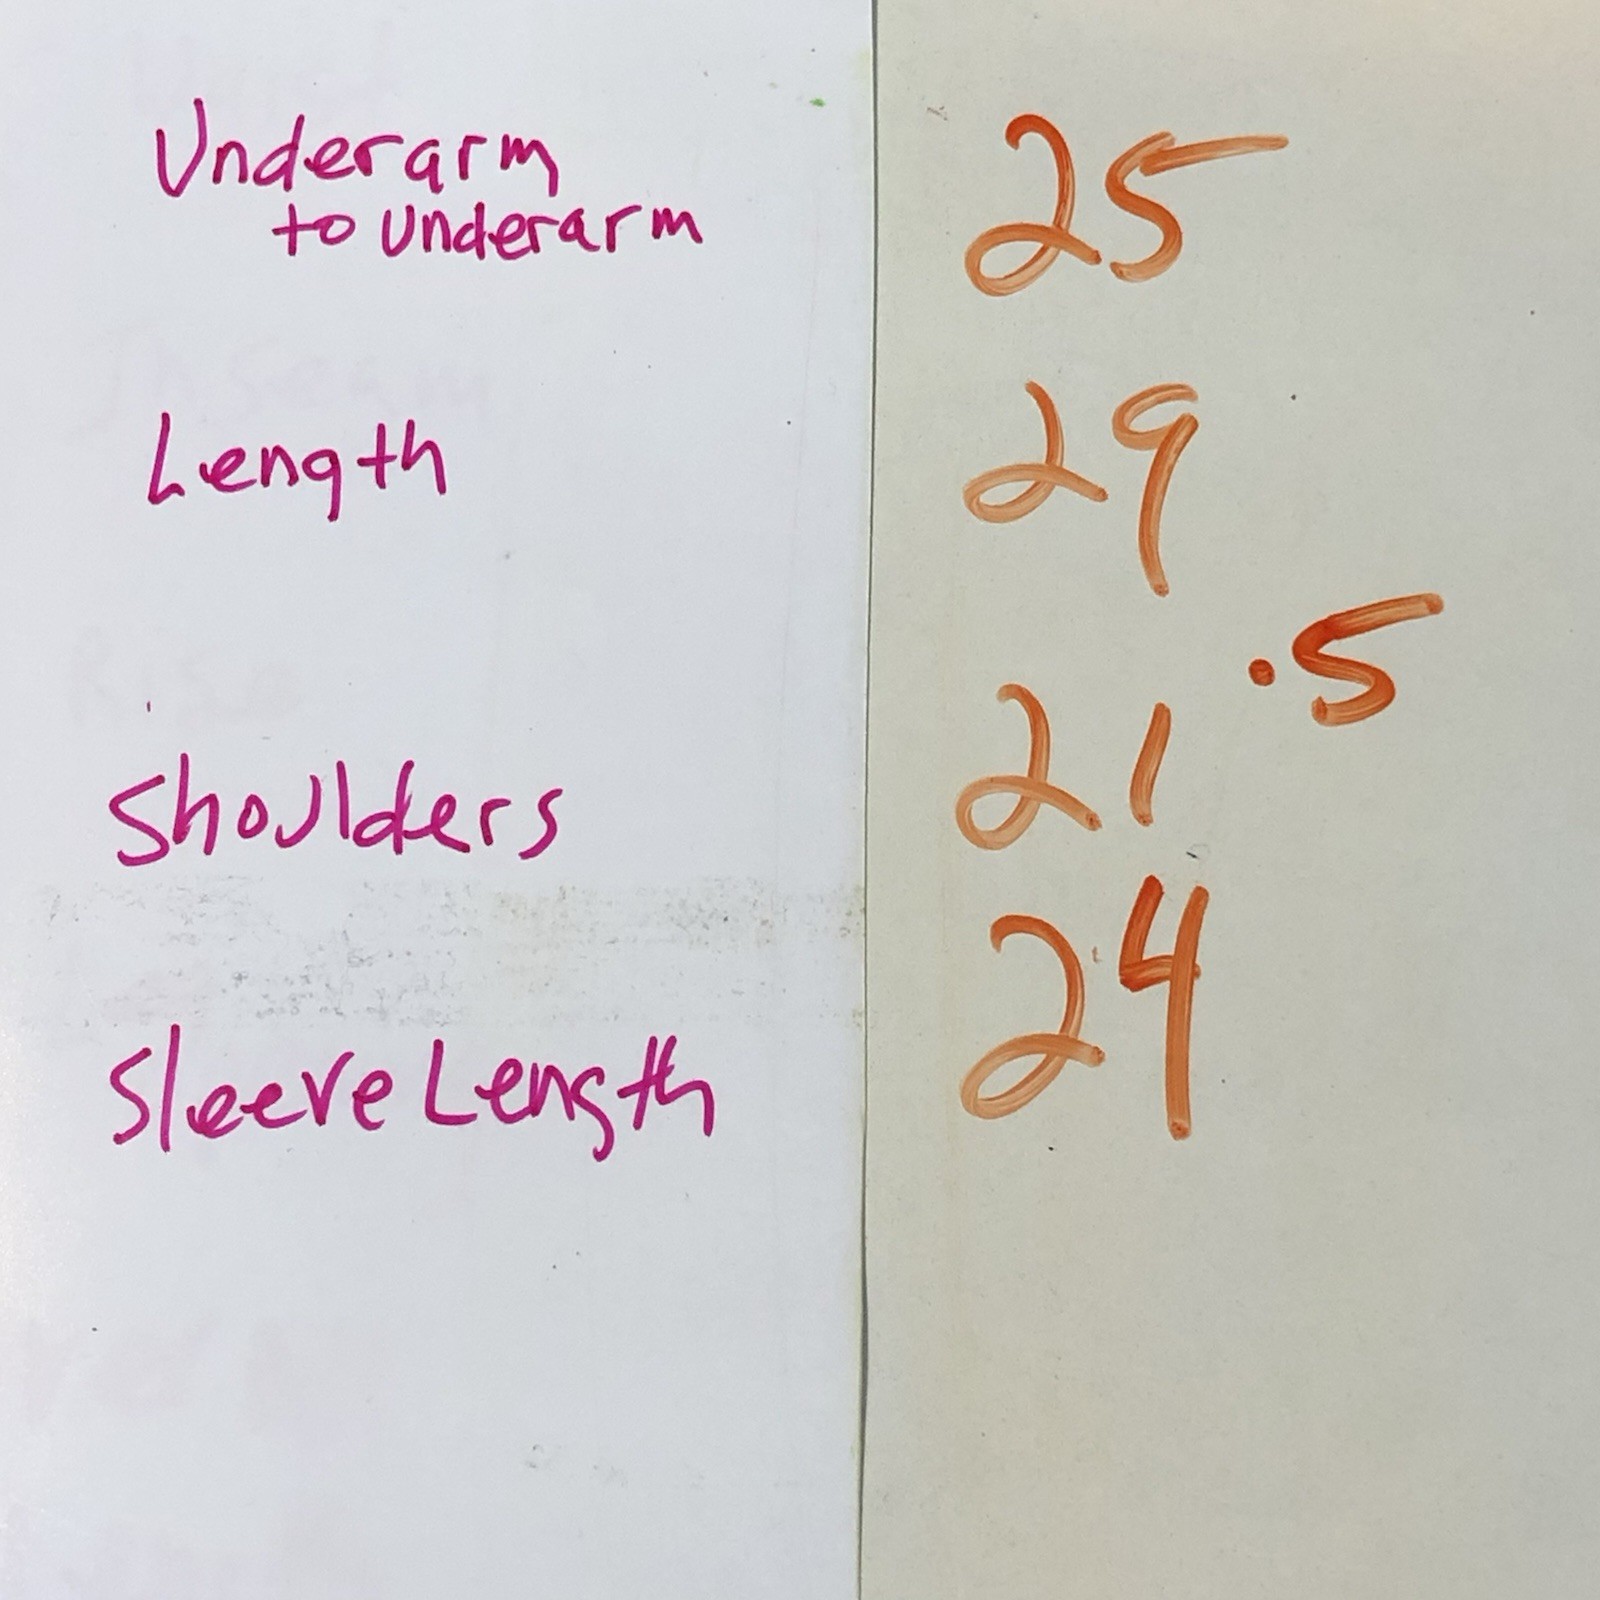 Underarm
to underarm 25
Length 29
Shoulders 21.5
Sleeve Length 24